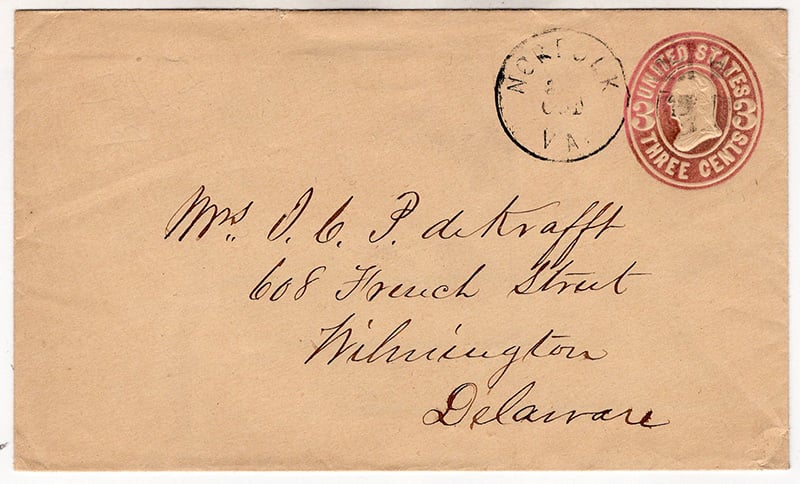 NORFOLK
VA.
UNITED STATES
3 3
THREE CENTS
Mrs. J. C. P. deKrafft
608 French Street
Wilmington
Delaware